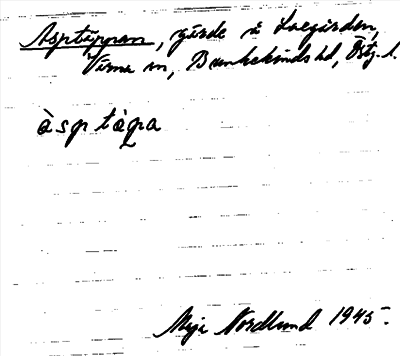 Asptäppan, gärde å Laegården,
Värna sn, Bankekinds hd, Östg. l.
àsptàpa
Maja Nordlund 1945.